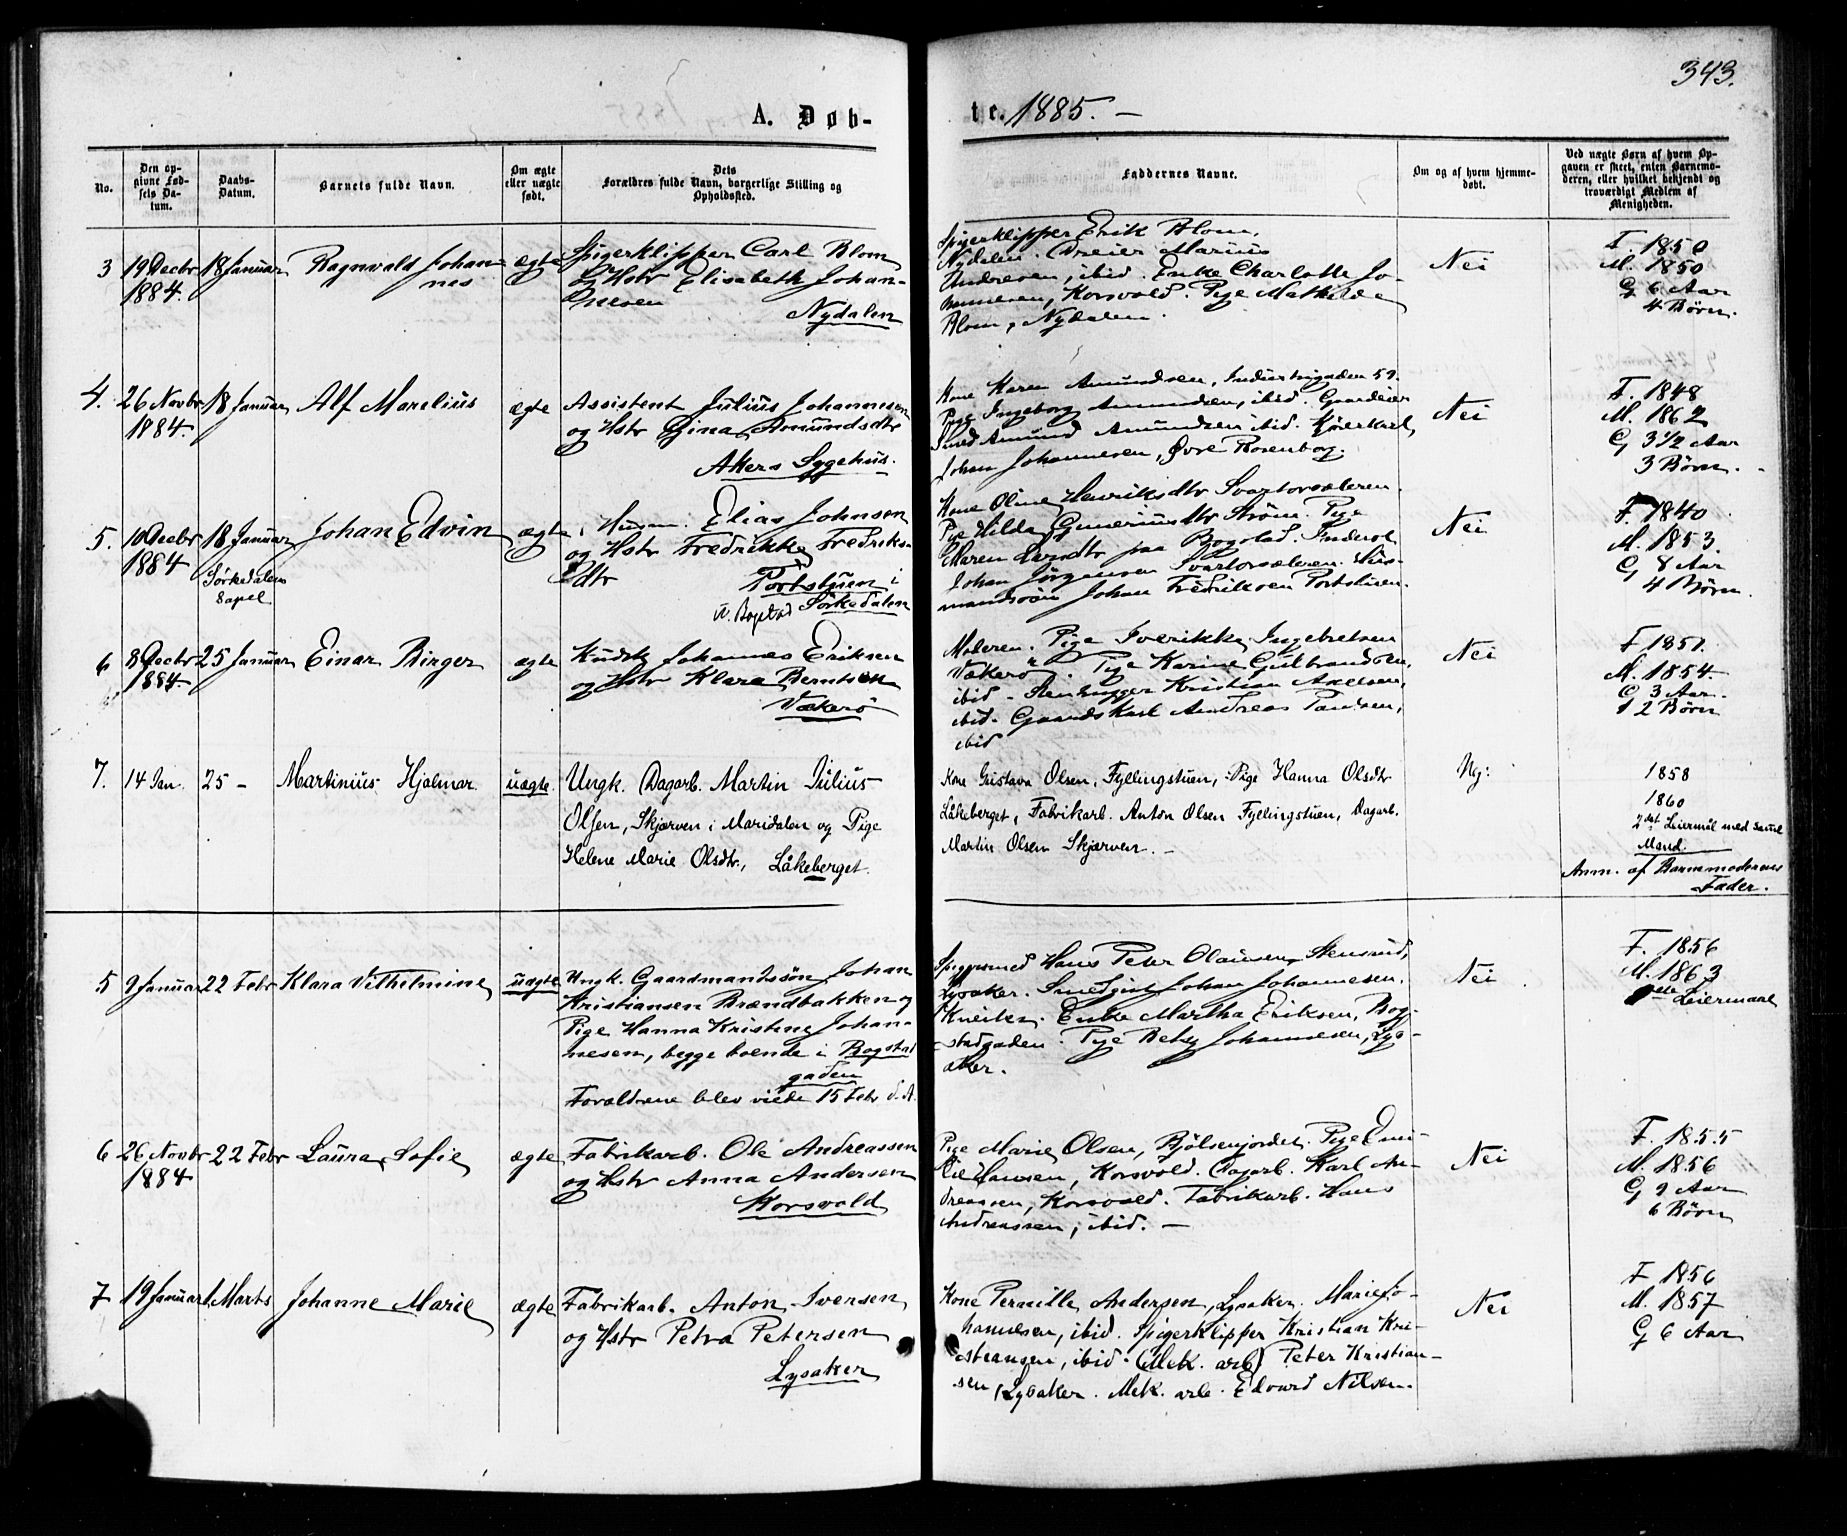 343.
A. Døb-
te. 1885. –
No.
Den op-
givne Fød-
sels Da-
tum.
Daabs-
Datum.
Barnets fulde Navn.
Om ægte
eller uægte
født.
Dets
Forældres fulde Navn, borgerlige Stilling og
Opholdssted.
Faddernes Navne.
Om og af hvem hjemme-
døbt.
Ved uægte Børn af hvem Op-
gaven er skeet, enten Barnemo-
deren, eller hvilket bekjendt og
troværdigt Medlem af
Menigheden.
3
19 Decbr
1884.
18 Januar
Ragnvald Johan-
nes
ægte
Spigerklipper Carl Blom
og Hstr Elisabeth Johan-
nesen
Nydalen
Spigerklipper Erik Blom,
Nydalen. Dreier Marius
Andresen, ibid. Enke Charlotte Jo-
hannesen, Korsvold. Pige Mathilde
Blom, Nydalen.
Nei
F. 1850
M. 1850
G 6 Aar
4 Børn.
4.
26 Novbr
1884.
18 Januar
Alf Marelius
ægte
Assistent Julius Johannesen
og Hstr Gina Amundsdtr
Akers Sygehus.
Kone Karen Amundsen, Industrigaden 59.
Pige Ingeborg Amundsen, ibid. Gaardeier
Smed Amund Amundsen ibid. Kjørekarl
Johan Johannesen, Øvre Rosenborg.
Nei
F. 1848
M. 1862
G 3 1/2 Aar
3 Børn.
5.
10 Decbr
1884
18 Januar
Sørkedalens
Capel
Johan Edvin
ægte
Husm. Elias Johnsen
og Hstr Fredrikke Fredriks-
dtr
Portstuen i
v. Bogstad Sørkedalen
Kone Oline Henriksdtr Svartorsæteren.
Pige Hilda Guneriusdtr Strøm. Pige
Maren Larsdtr paa Bogstad. Inderst
Johan Jørgensen Svartorsæteren. Hus-
mandssøn Johan Fredriksen Portstuen.
Nei
F. 1840
M. 1853.
G 8 Aar
4 Børn.
6
8 Decbr
1884.
25 Januar
Einar Birger
ægte
Kudsk Johannes Eriksen
og Hstr Klara Berntsen
Vækerø
Moderen. Pige Sverikke Ingebretsen
Vækerø. Pige Karine Gulbrandsen,
ibid. Stenhugger Kristian Axelsen,
ibid. Gaardskarl Andreas Paulsen,
ibid
Nei
F 1851.
M. 1854.
G 3 Aar.
2 Børn
7.
14 Jan.
25 –
Martinius Hjalmar.
uægte.
Ungk. Dagarb. Martin Julius
Olsen, Skjærven i Maridalen og Pige
Helene Marie Olsdtr., Låkeberget.
Kone Gustava Olsen, Fyllingstuen, Pige Hanna Olsdtr
Låkeberget, Fabrikarb. Anton Olsen Fyllingstuen, Dagarb.
Martin Olsen Skjærven. –
Nej:
1858
1860
2det Leiermål med samme
Mand.
Anm. af Barnemoderens
Fader.
5
9 Januar
22 Febr
Klara Vilhelmine
uægte
Ungk. Gaardmandssøn Johan
Kristiansen Brændbakken og
Pige Hanna Kristine Johan-
nesen, begge boende i Bogstad
gaden
Forældrene blev viede 15 Febr d. A.
Spigersmed Hans Peter Olausen, Stensrud,
Lysaker. Smedgut Johan Johannesen,
Kneiken. Enke Martha Eriksen, Bog-
stadgaden. Pige Betsy Johannesen, Lys-
aker.
Nei
F. 1856
M. 1863
Leiermaal
6
26 Novbr
1884
22 Febr
Laura Sofie
ægte
Fabrikarb. Ole Andreassen
og Hstr Anna Andersen
Korsvold
Pige Marie Olsen, Bjølsenjordet. Pige Emi-
lie Hansen, Korsvold. Dagarb. Karl An-
dreassen, Korsvold. Fabrikarb. Hans
Andreassen, ibid. –
Nei
F. 1855
M. 1856
G 9 Aar
6 Børn
7
19 Januar
1. Marts
Johanne Marie
ægte
Fabrikarb. Anton Iversen
og Hstr Petra Petersen
Lysaker
Kone Pernille Andersen, Lysaker. Marie Jo-
hannesen, ibid. Spigerklipper Kristian Kri-
stiansen, ibid. (Mek. arb) Peter Kristian-
sen, Lysaker. Mek. arb. Edvard Nilsen.
Nei
F 1856
M. 1857
G 6 Aar